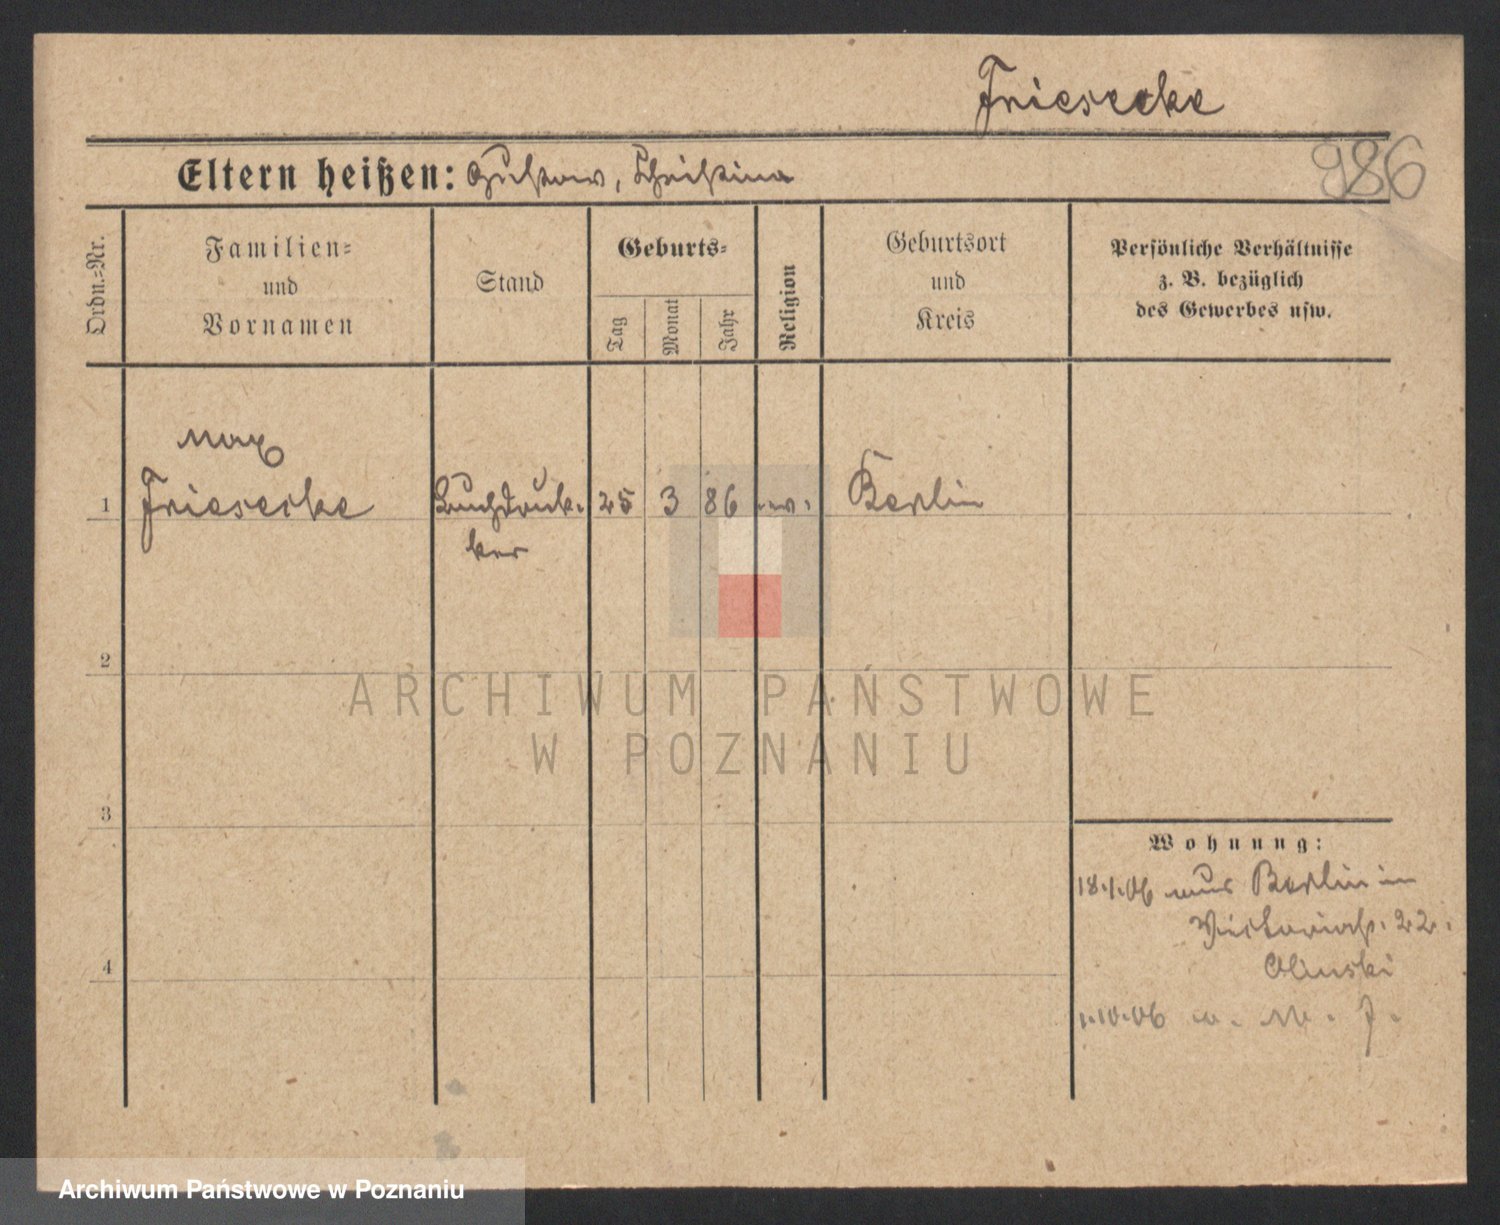 Friesecke
986
Eltern heißen: Gustav, Christina
Ordn.-Nr.
Familien-
und
Vornamen
Stand
Geburts-
Tag
Monat
Jahr
Religion
Geburtsort
und
Kreis
Persönliche Verhältnisse
z. B. bezüglich
des Gewerbes usw.
Max
1 Friesecke Buchdruk- 25 3 86 ev. Berlin
ker
2
3
4
Wohnung:
18.1.06 aus Berlin in
Victoriastr. 22.
Olinski
1.10.06
ARCHIWUM PAŃSTWOWE
W POZNANIU
Archiwum Państwowe w Poznaniu